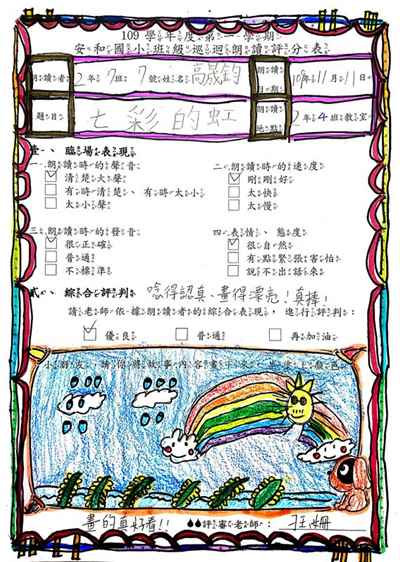 109學年度第一學期
安和國小班級巡迴朗讀評分表
朗讀者 2年7班7號姓名高晟鈞 朗讀日期 109年11月11日
題目 七彩的虹 朗讀地點 2年4班教室
壹、臨場表現
一、朗讀時的聲音 二、朗讀時的速度
清楚大聲 剛剛好
有時清楚、有時太小 太快
太小聲 太慢
三、朗讀時的發音 四、表情、態度
很正確 很自然
普通 有點緊張害怕
不標準 說不出話來
貳、綜合評判 唸得認真、畫得漂亮!真棒!
請老師依據朗讀者的綜合表現,進行評判:
優良 普通 再加油
小朋友,請你將故事內容畫下來,
畫的真好看!! 評審老師: